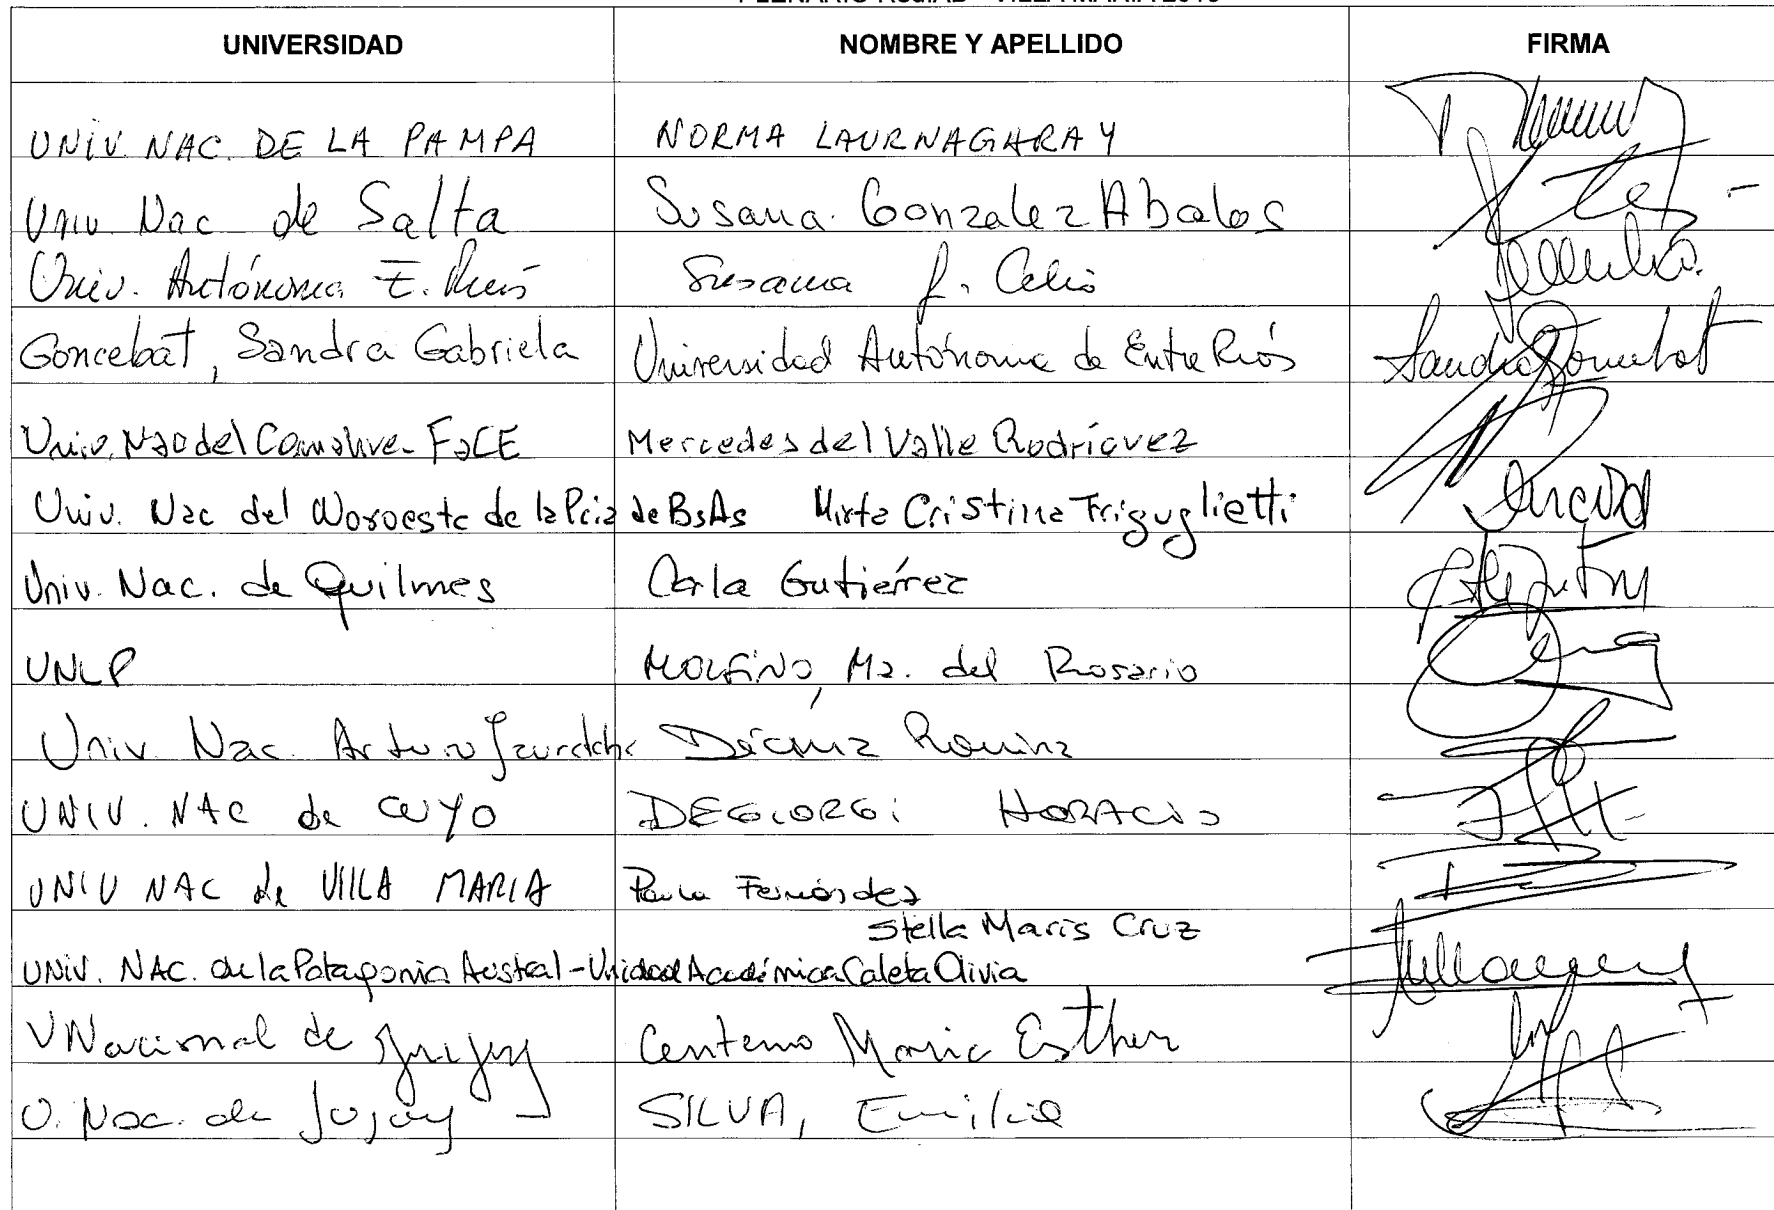 UNIVERSIDAD NOMBRE Y APELLIDO FIRMA
UNIV. NAC. DE LA PAMPA NORMA LAURNAGARAY
Univ. Nac de Salta Susana Gonzalez Abalos
Univ. Autónoma E. Ríos Susana Celis
Goncebat, Sandra Gabriela Universidad Autónoma de Entre Ríos Sandra Goncebat
Univ. Nac del Comahue - FaCE Mercedes del Valle Rodríguez
Univ. Nac del Noroeste de la Pcia de BsAs Mirta Cristina Triguglietti
Univ. Nac. de Quilmes Carla Gutiérrez
UNLP MOLFINO, Ma. del Rosario
Univ. Nac. Arturo Jauretche Romina
UNIV. NAC de CUYO DEGIORGI HORACIO
UNIV NAC de VILLA MARIA Paula Fernández
Stella Maris Cruz
UNIV. NAC. de la Patagonia Austral - Unidad Académica Caleta Olivia
U Nacional de Jujuy Centeno Maria Esther
U. Nac. de Jujuy SILVA, Emilia